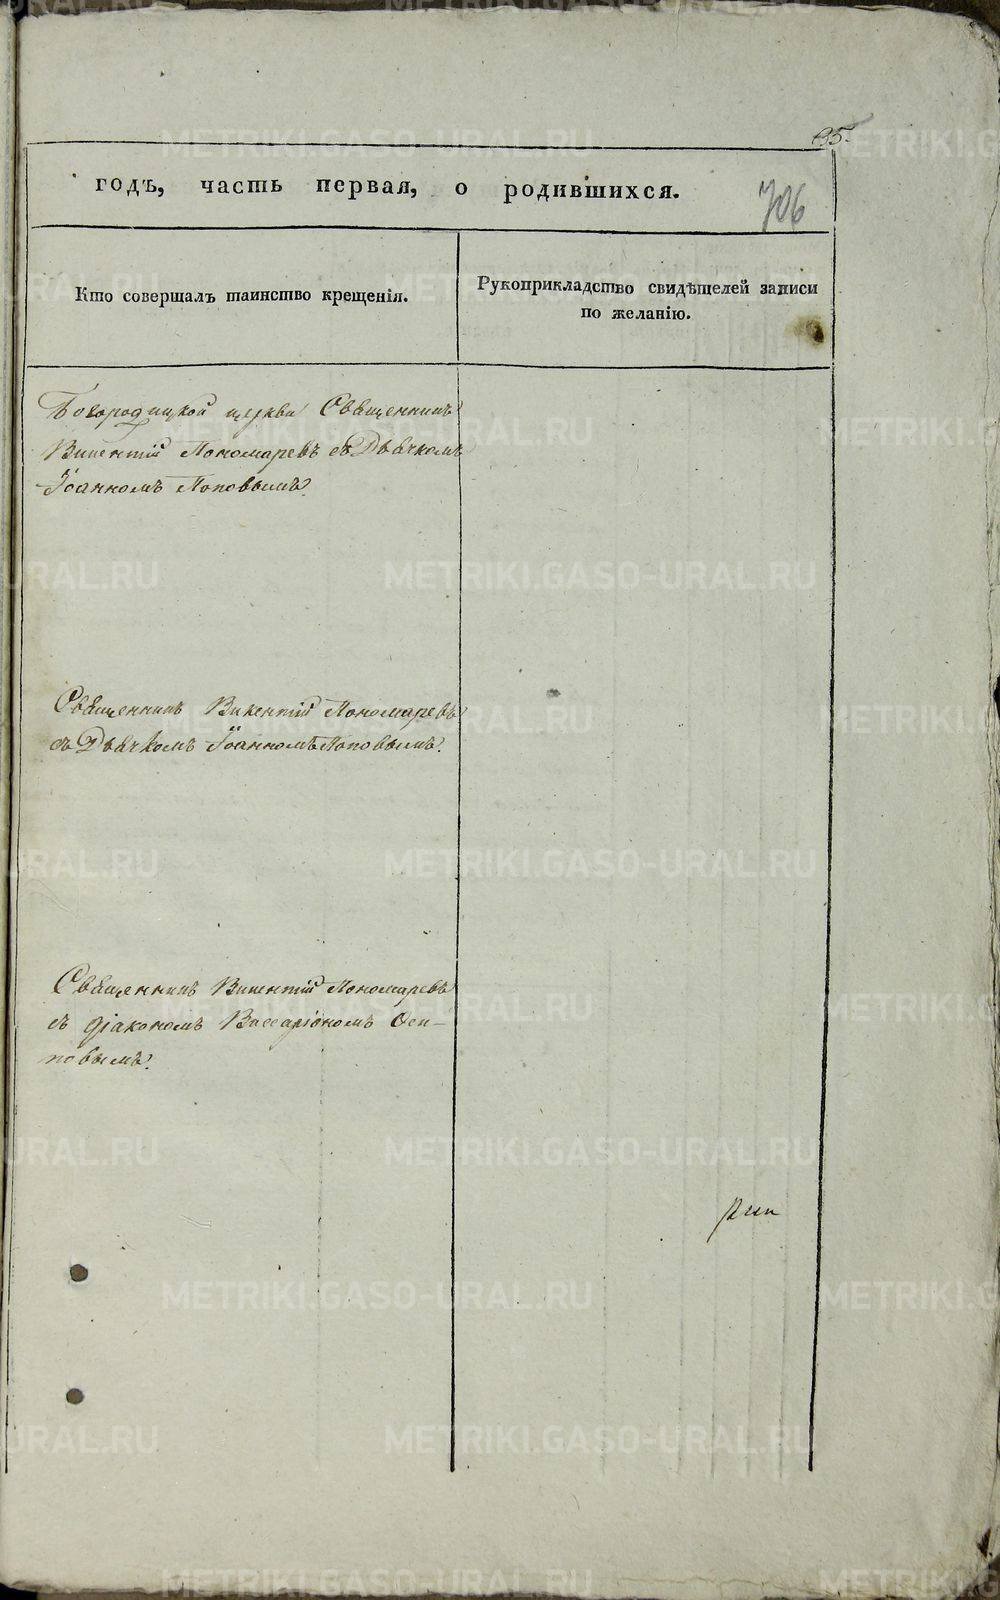 85.
годъ, часть первая, о родившихся.
706
Кто совершалъ таинство крещенія.
Рукоприкладство свидѣтелей записи
по желанію.
Богородицкой церкви Священникъ
Викентій Пономаревъ съ Дьячкомъ
Іоанномъ Поповымъ.
Священникъ Викентій Пономаревъ
съ Дьячкомъ Іоанномъ Поповымъ.
Священникъ Викентій Пономаревъ
съ діакономъ Виссаріономъ Оси-
повымъ.
METRIKI.GASO-URAL.RU